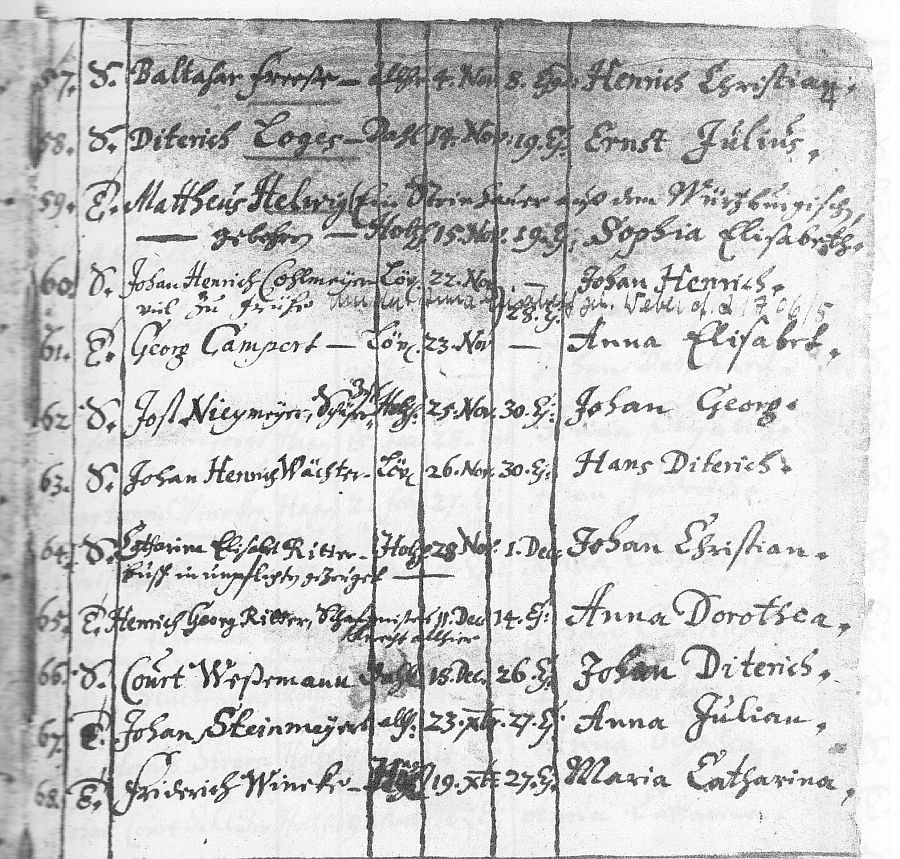 57. S. Baltasar Freese — allhr 4. Nov. 8. Ej. Henrich Christian.
58. S. Diterich Loges — Dahl 14. Nov. 19. Ej. Ernst Julius.
59. T. Mattheus Helwig (Ein Steinhauer auß dem Würtzburgischen
— gebohren — Holtz 15. Nov. 19. Ej. Sophia Elisabeth.
60. S. Johan Henrich Cohlmeyer Löy. 22. Nov — Johan Henrich.
viel zu frühe geb. Weber 1706/5
28. Ej.
61. T. Georg Campert — Löy. 23. Nov — Anna Elisabet.
62. S. Jost Niegmeyer, Holtz. 25. Nov. 30. Ej. Johan Georg.
63. S. Johan Henrich Wächter. Löy 26. Nov. 30. Ej. Hans Diterich.
64. S. Catharina Elisabet Ritter — Holtz 28 Nov. 1. Dec. Johan Christian.
in unpflichten gezeiget —
65. T. Henrich Georg Ritter, Schafmeister 11. Dec 14. Ej. Anna Dorothea.
knecht allhier
66. S. Court Weßemann Dahl 18. Dec. 26. Ej. Johan Diterich.
67. T. Johan Steinmeyer allh. 23. xbr. 27. Ej. Anna Julian.
68. T. Friderich Wineke — 19. xbr 27. Ej. Maria Catharina.